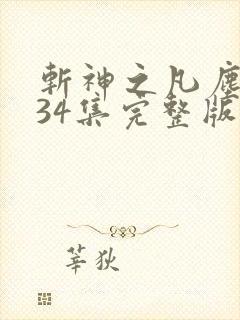 斬神之凡塵
34集完整版
莘狄